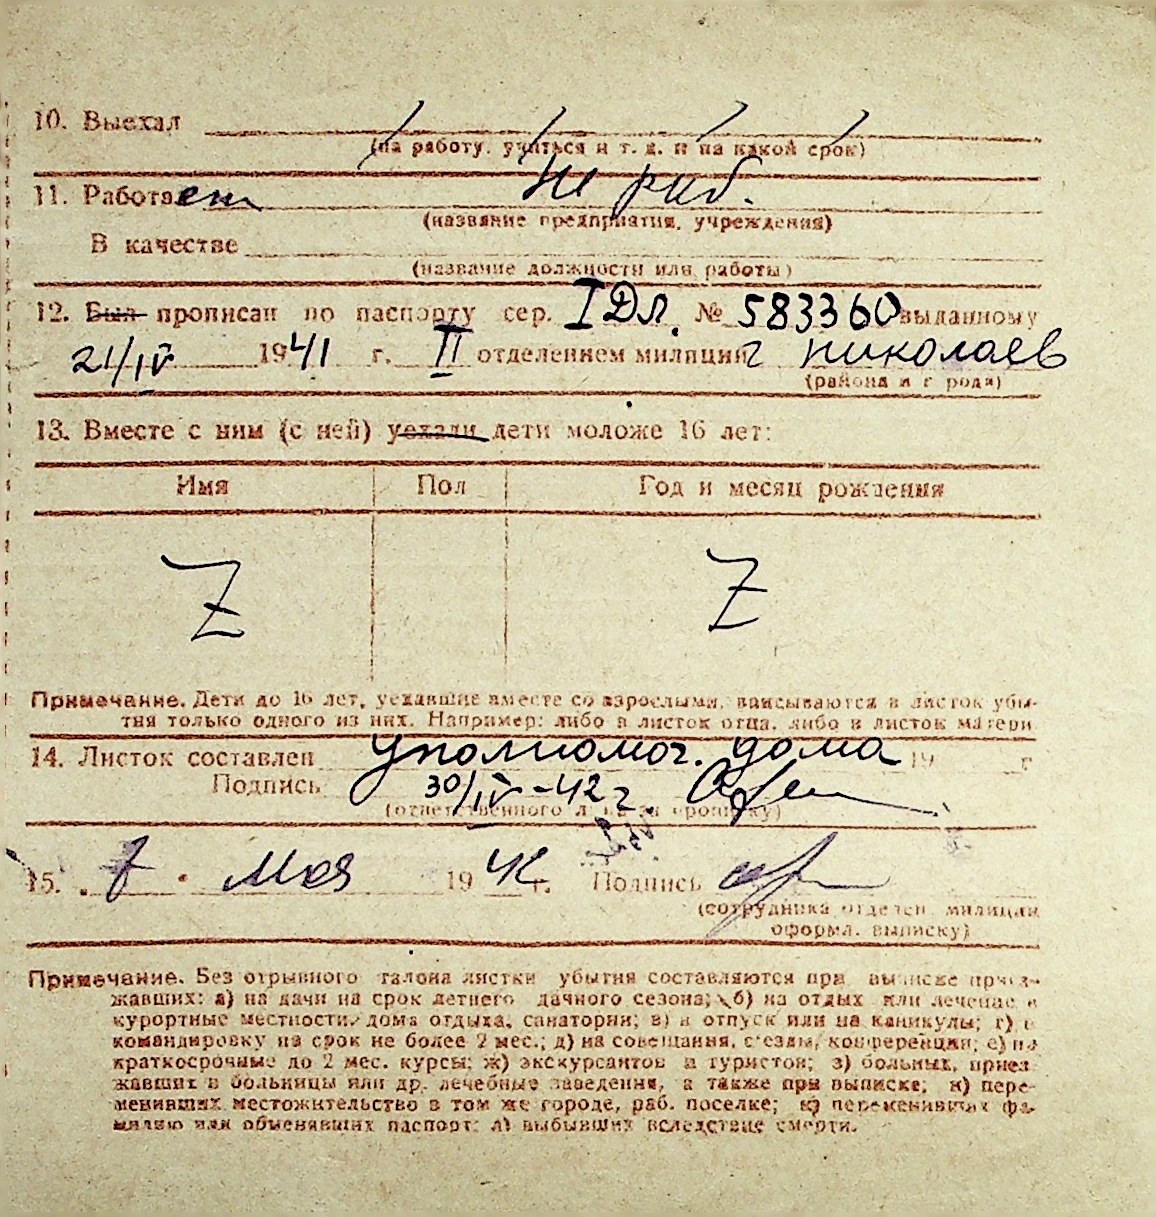 10. Выехал
(на работу, учиться и т. д. и на какой срок)
11. Работает не раб.
(название предприятия, учреждения)
В качестве
(название должности или работы)
12. Был прописан по паспорту сер. I Дл. № 583360 выданному
21/IV 1941 г. II отделением милиции г Николаев
(района и города)
13. Вместе с ним (с ней) уехали дети моложе 16 лет:
Имя Пол Год и месяц рождения
Z Z
Примечание. Дети до 16 лет, уехавшие вместе со взрослыми, вписываются в листок убы-
тия только одного из них. Например: либо в листок отца, либо в листок матери
14. Листок составлен уполномоч. дома 19 г
Подпись 30/IV-42 г
(ответственного лица за прописку)
15. 7 мая 1942 г. Подпись
(сотрудника отделен. милиции
оформл. выписку)
Примечание. Без отрывного талона листки убытия составляются при выписке приез-
жавших: а) на дачи на срок летнего дачного сезона; б) на отдых или лечение в
курортные местности, дома отдыха, санатории; в) в отпуск или на каникулы; г) в
командировку на срок не более 2 мес.; д) на совещания, с'езды, конференции; е) на
краткосрочные до 2 мес. курсы; ж) экскурсантов и туристов; з) больных, приез
жавших в больницы или др. лечебные заведения, а также при выписке; и) пере-
менивших местожительство в том же городе, раб. поселке; к) переменивших фа-
милию или обменявших паспорт; л) выбывших вследствие смерти.